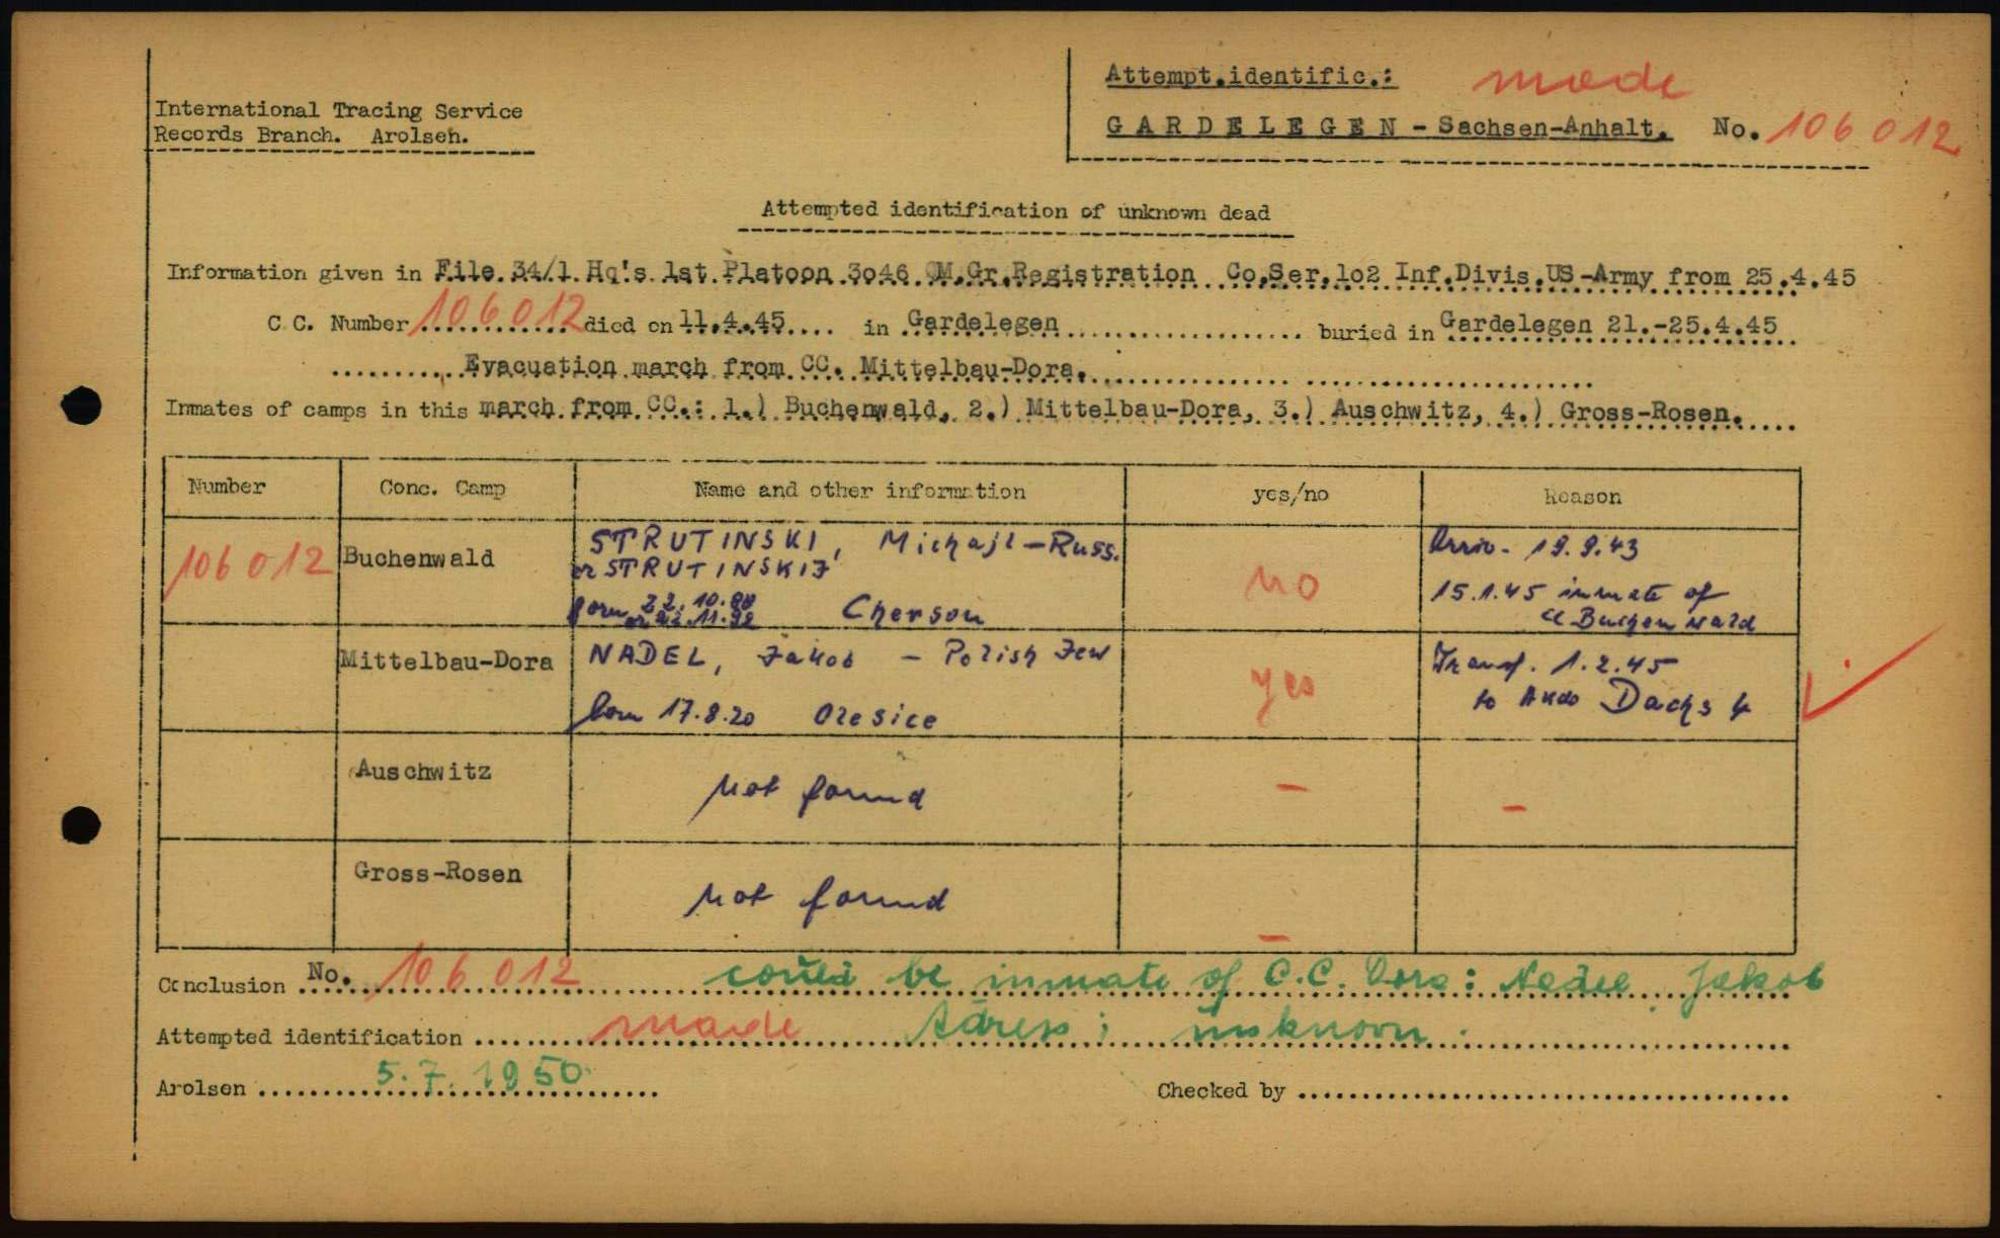 Attempt.identific.: made
International Tracing Service
Records Branch. Arolsen.
GARDELEGEN - Sachsen-Anhalt. No. 106 012
Attempted identification of unknown dead
Information given in File. 34/1. Hq's. 1st. Platoon 3o46. QM.Gr.Registration Co.Ser.1o2 Inf.Divis.US-Army from 25.4.45
C.C. Number 106012 died on 11.4.45.... in Gardelegen buried in Gardelegen 21.-25.4.45
Evacuation march from CC. Mittelbau-Dora.
Inmates of camps in this march from CC.: 1.) Buchenwald, 2.) Mittelbau-Dora, 3.) Auschwitz, 4.) Gross-Rosen.
Number Conc. Camp Name and other information yes/no Reason
106 012 Buchenwald STRUTINSKI, Michajl - Russ. no Arriv. 19.9.43
or STRUTINSKIJ
15.1.45 inmate of
born 22.10.98
or 22.11.98 Cherson
cc Buchenwald
Mittelbau-Dora NADEL, Jakob - Polish Jew yes Transf. 1.2.45
born 17.8.20 Olesice to Akdo Dachs 4
Auschwitz not found - -
Gross-Rosen not found -
Conclusion No. 106 012 could be inmate of C.C. Dora: Nadel Jakob
Attempted identification made Adress: unknown.
Arolsen 5.7.1950 Checked by